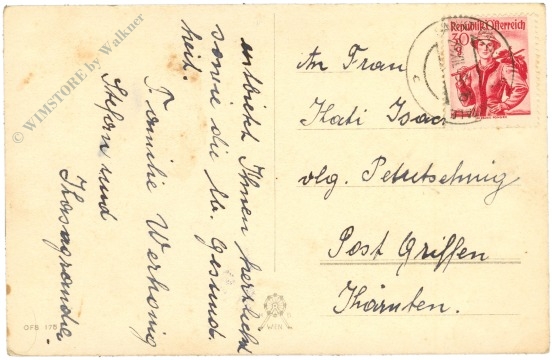 entbietet Ihnen herzlichst
sowie die lb. Gesund-
heit.
Familie Werhonig
Stefan und
An Frau
Kati Isac
vlg. Petutschnig
Post Griffen
Kärnten.
Republik Österreich
30
© WIMSTORE by Walkner
OFB 175
WIEN